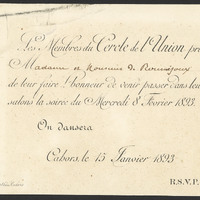 Les Membres du Cercle de l'Union pri
Madame et Monsieur de
de leur faire l'honneur de venir passer dans leur
salons la soirée du Mercredi 8 Février 1893.
On dansera
Cahors, le 15 Janvier 1893
R.S.V.P.